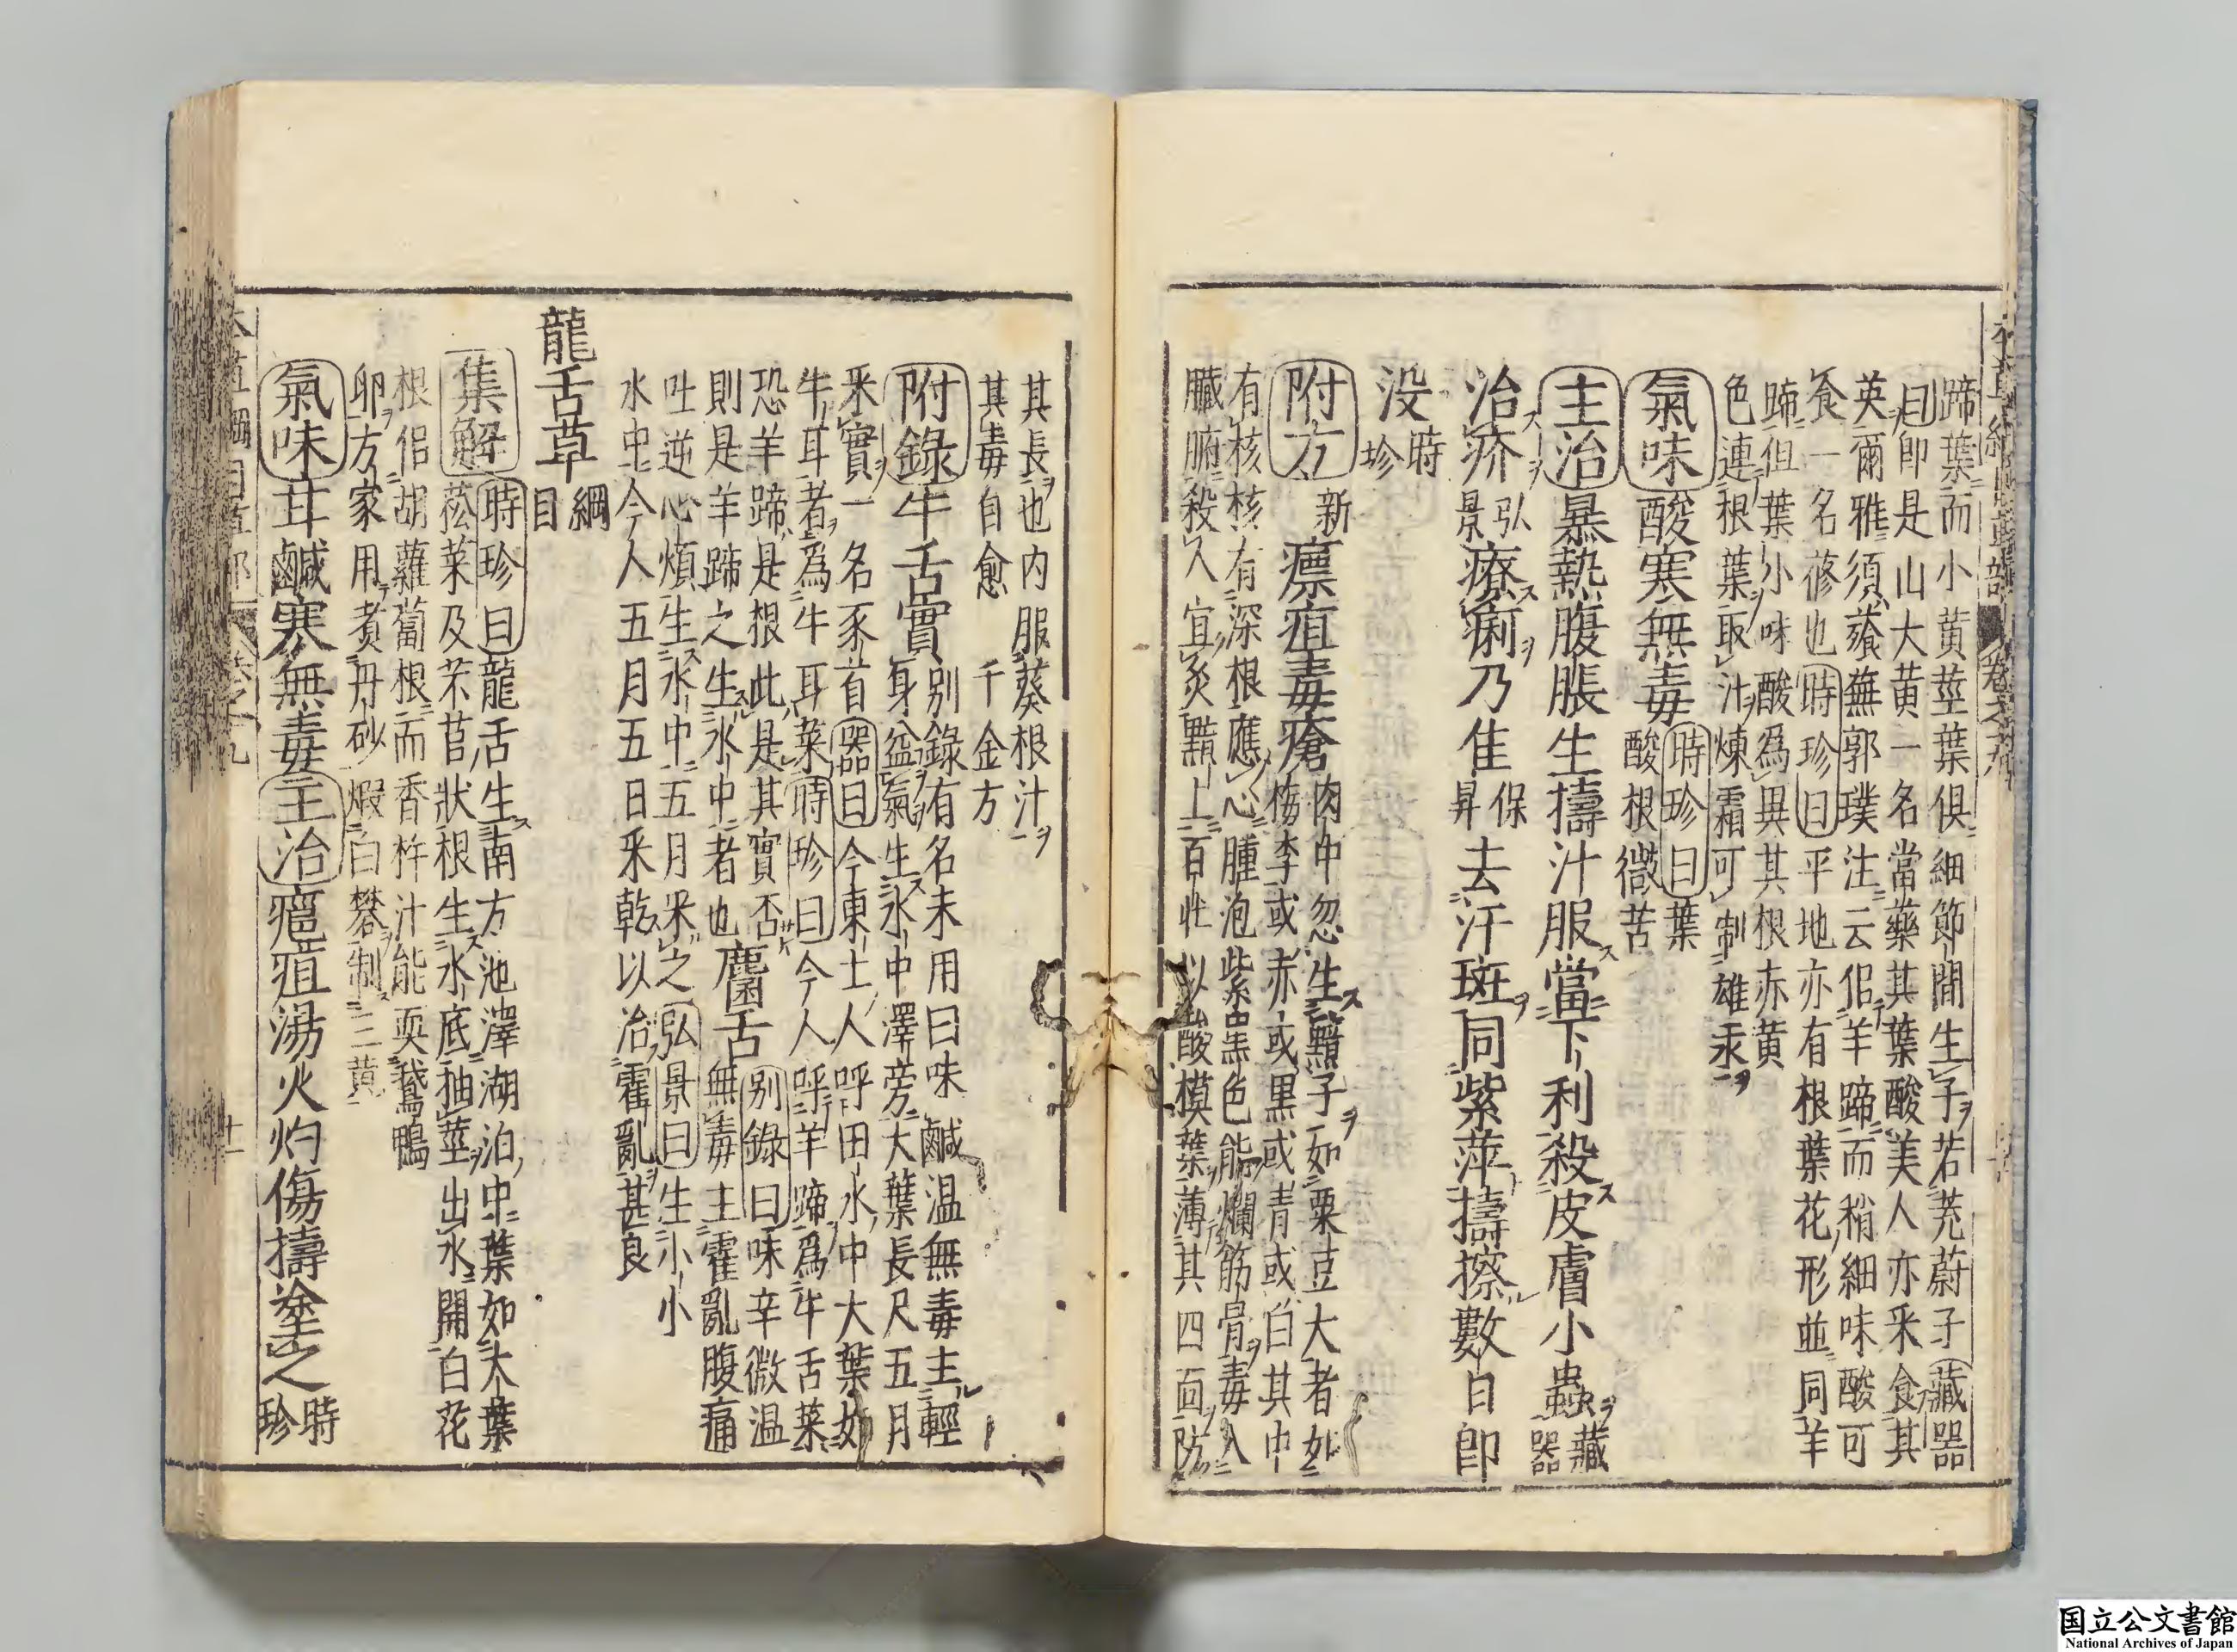 蹄葉而小黄莖葉俱細節間生子若茺蔚子藏器
曰即是山大黄一名當藥其葉酸美人亦采食其
英爾雅須蕵蕪郭璞注云似羊蹄而稍細味酸可
食一名蓚也時珍曰平地亦有根葉花形並同羊
蹄但葉小味酸爲異其根赤黄
色連根葉取汁煉霜可制雄汞
氣味酸寒無毒時珍曰葉
酸根微苦
主治暴熱腹脹生擣汁服當下利殺皮膚小蟲藏
器
治疥弘
景療痢乃佳保
昇去汗斑同紫萍擣擦數日即
没時
珍
附方新
瘭疽毒瘡肉中忽生黯子如粟豆大者如
梅李或赤或黒或青或白其中
有核核有深根應心腫泡紫黒色能爛筋骨毒入
臟腑殺人宜灸黯上百壯以酸模葉薄其四面防
其長也内服葵根汁
其毒自愈千金方
附錄牛舌實别錄有名未用曰味鹹温無毒主輕
身益氣生水中澤旁大葉長尺五月
采實一名豕首器曰今東土人呼田水中大葉如
牛耳者爲牛耳菜時珍曰今人呼羊蹄爲牛舌菜
恐羊蹄是根此是其實否
則是羊蹄之生水中者也麕舌别錄曰味辛微温
無毒主霍亂腹痛
吐逆心煩生水中五月采之弘景曰生小小
水中今人五月五日采乾以治霍亂甚良
龍舌草綱
目
集解時珍曰龍舌生南方池澤湖泊中葉如大葉
菘菜及芣苢狀根生水底抽莖出水開白花
根侣胡蘿蔔根而香杵汁能耎鵞鴨
卵方家用煮丹砂煅白礬制三黄
氣味甘鹹寒無毒主治癰疽湯火灼傷擣塗之時
珍
国立公文書館
National Archives of Japan